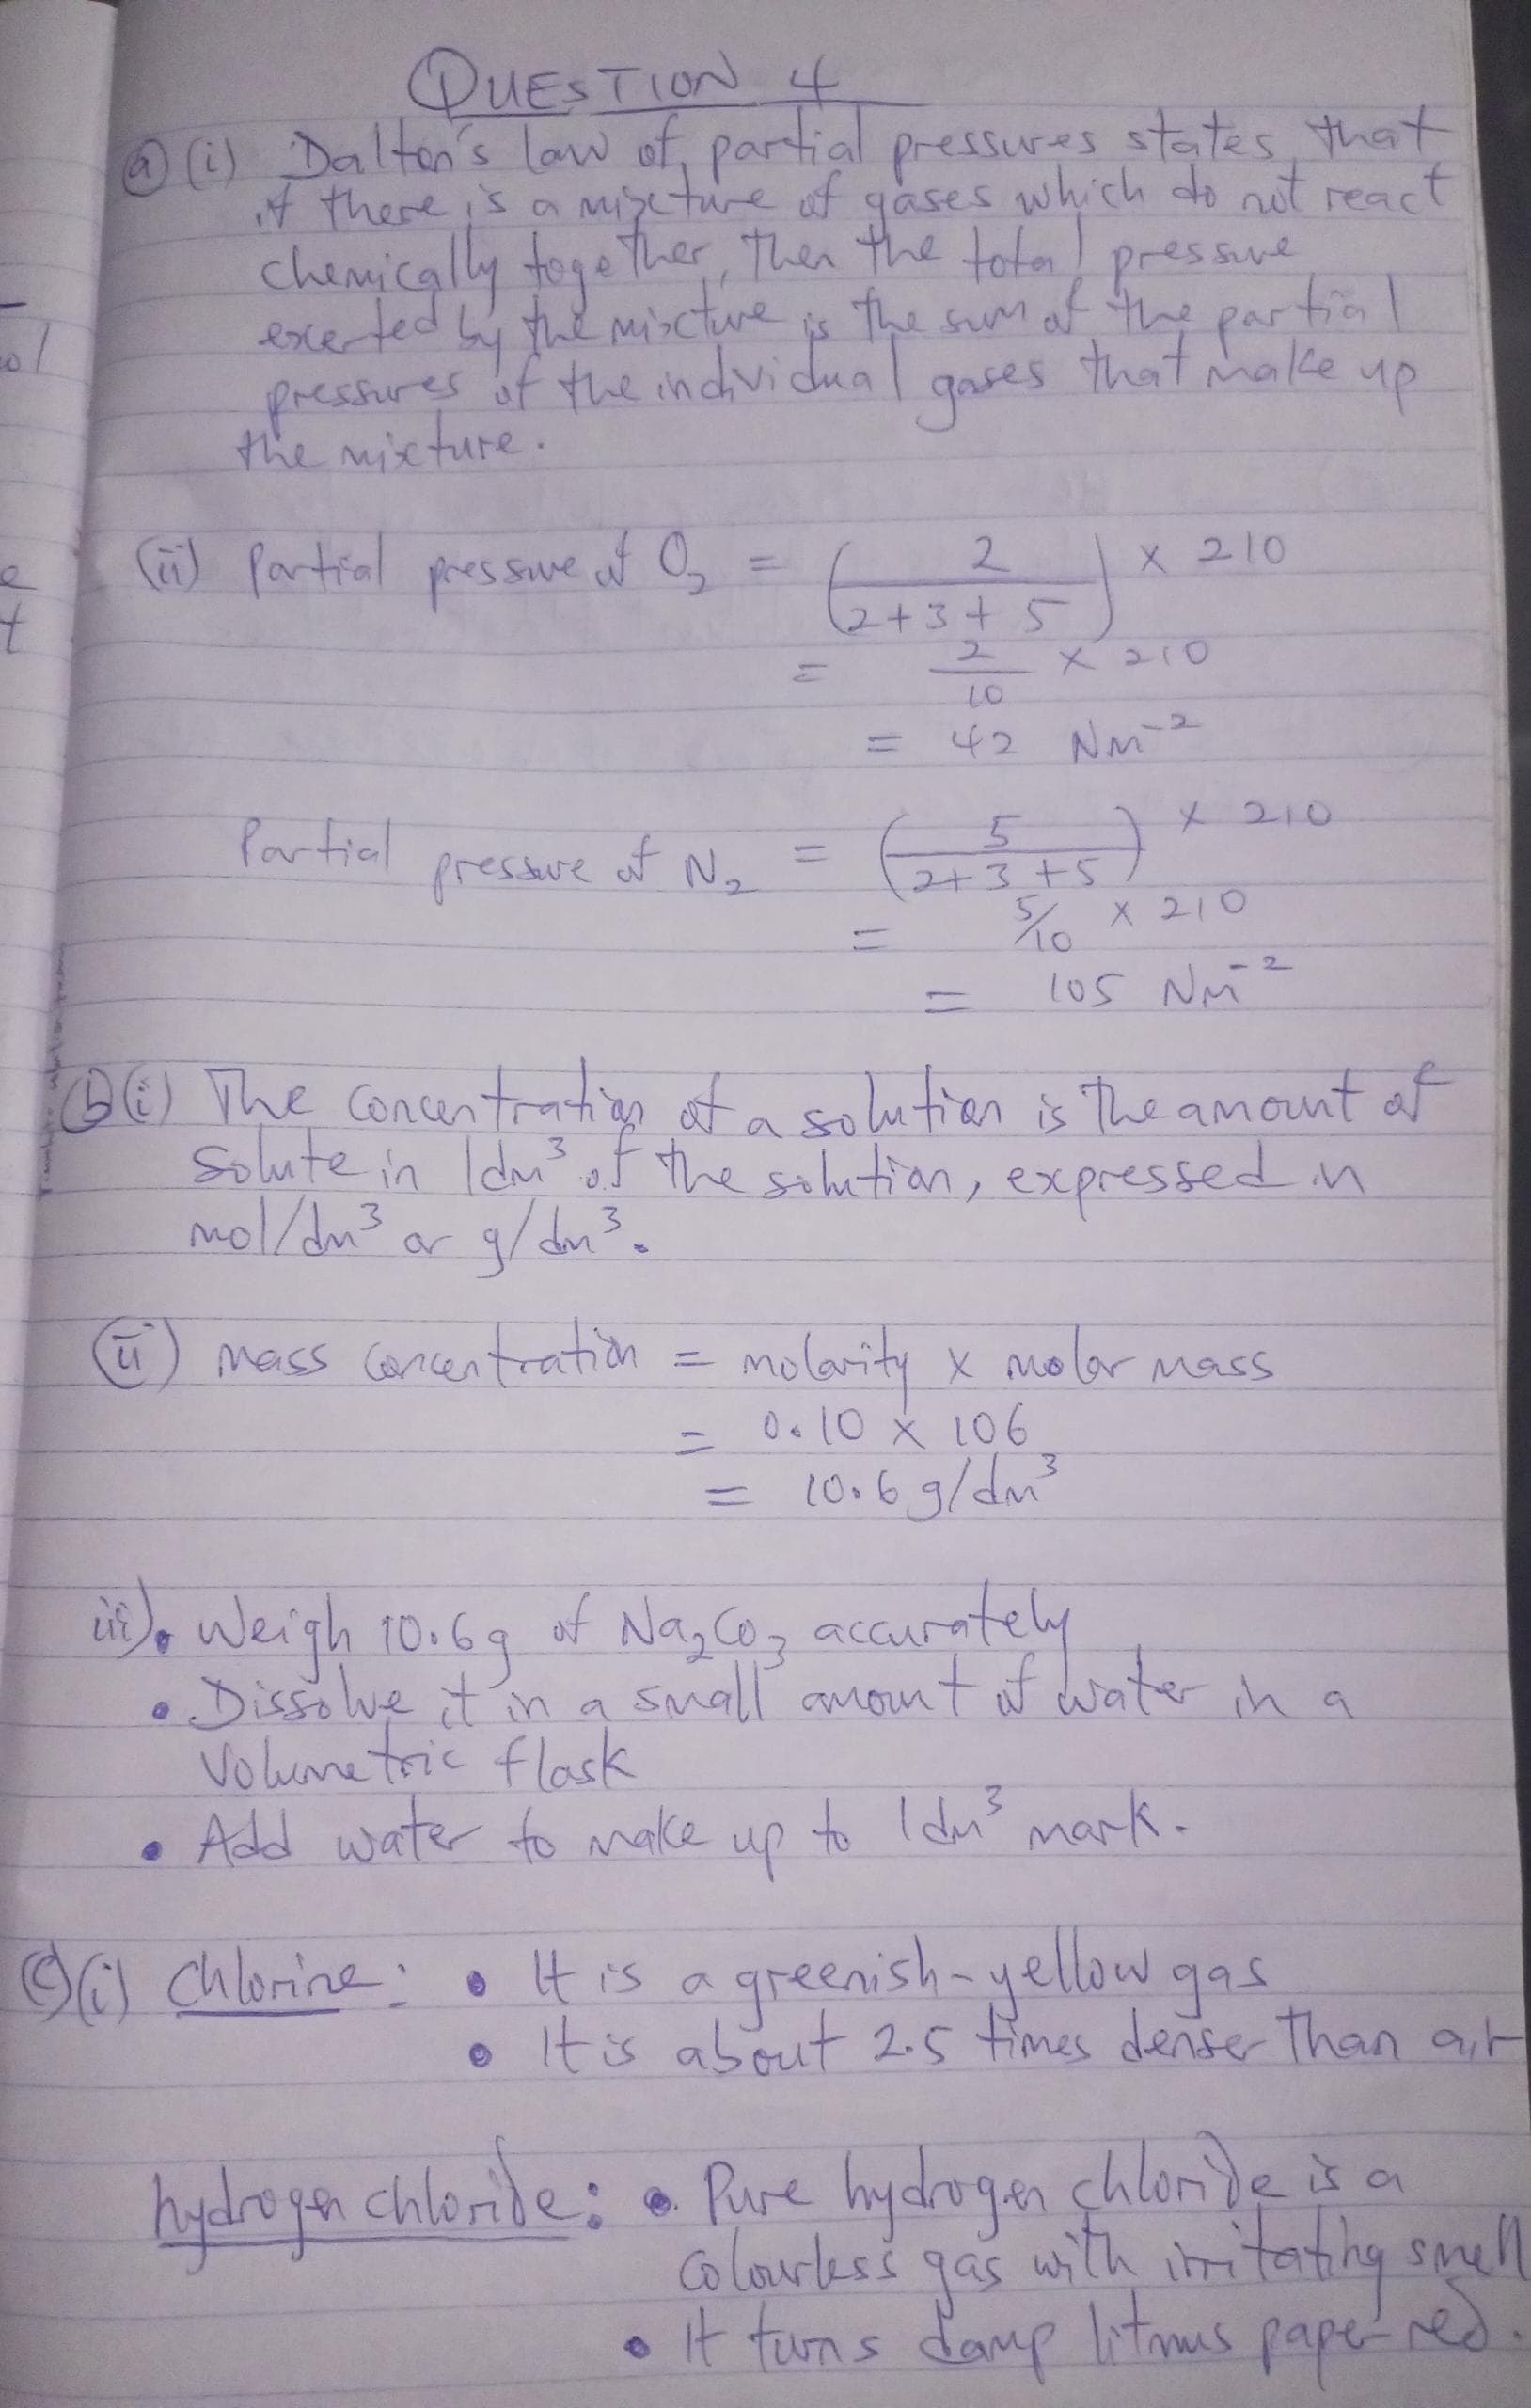 QUESTION 4
(a) (i) Dalton's law of partial pressures states that
if there is a mixture of gases which do not react
chemically together, then the total pressure
exerted by the mixture is the sum of the partial
pressures of the individual gases that make up
the mixture.
(ii) Partial pressure of O₂ = (2 / (2+3+5)) × 210
= 2/10 × 210
= 42 Nm⁻²
Partial pressure of N₂ = (5 / (2+3+5)) × 210
= 5/10 × 210
= 105 Nm⁻²
(b) (i) The concentration of a solution is the amount of
solute in 1dm³ of the solution, expressed in
mol/dm³ or g/dm³.
(ii) mass concentration = molarity × molar mass
= 0.10 × 106
= 10.6 g/dm³
iii) • Weigh 10.6g of Na₂CO₃ accurately
• Dissolve it in a small amount of water in a
volumetric flask
• Add water to make up to 1dm³ mark.
(c) (i) Chlorine: • It is a greenish-yellow gas
• It is about 2.5 times denser than air
hydrogen chloride: • Pure hydrogen chloride is a
colourless gas with irritating smell
• It turns damp litmus paper red.